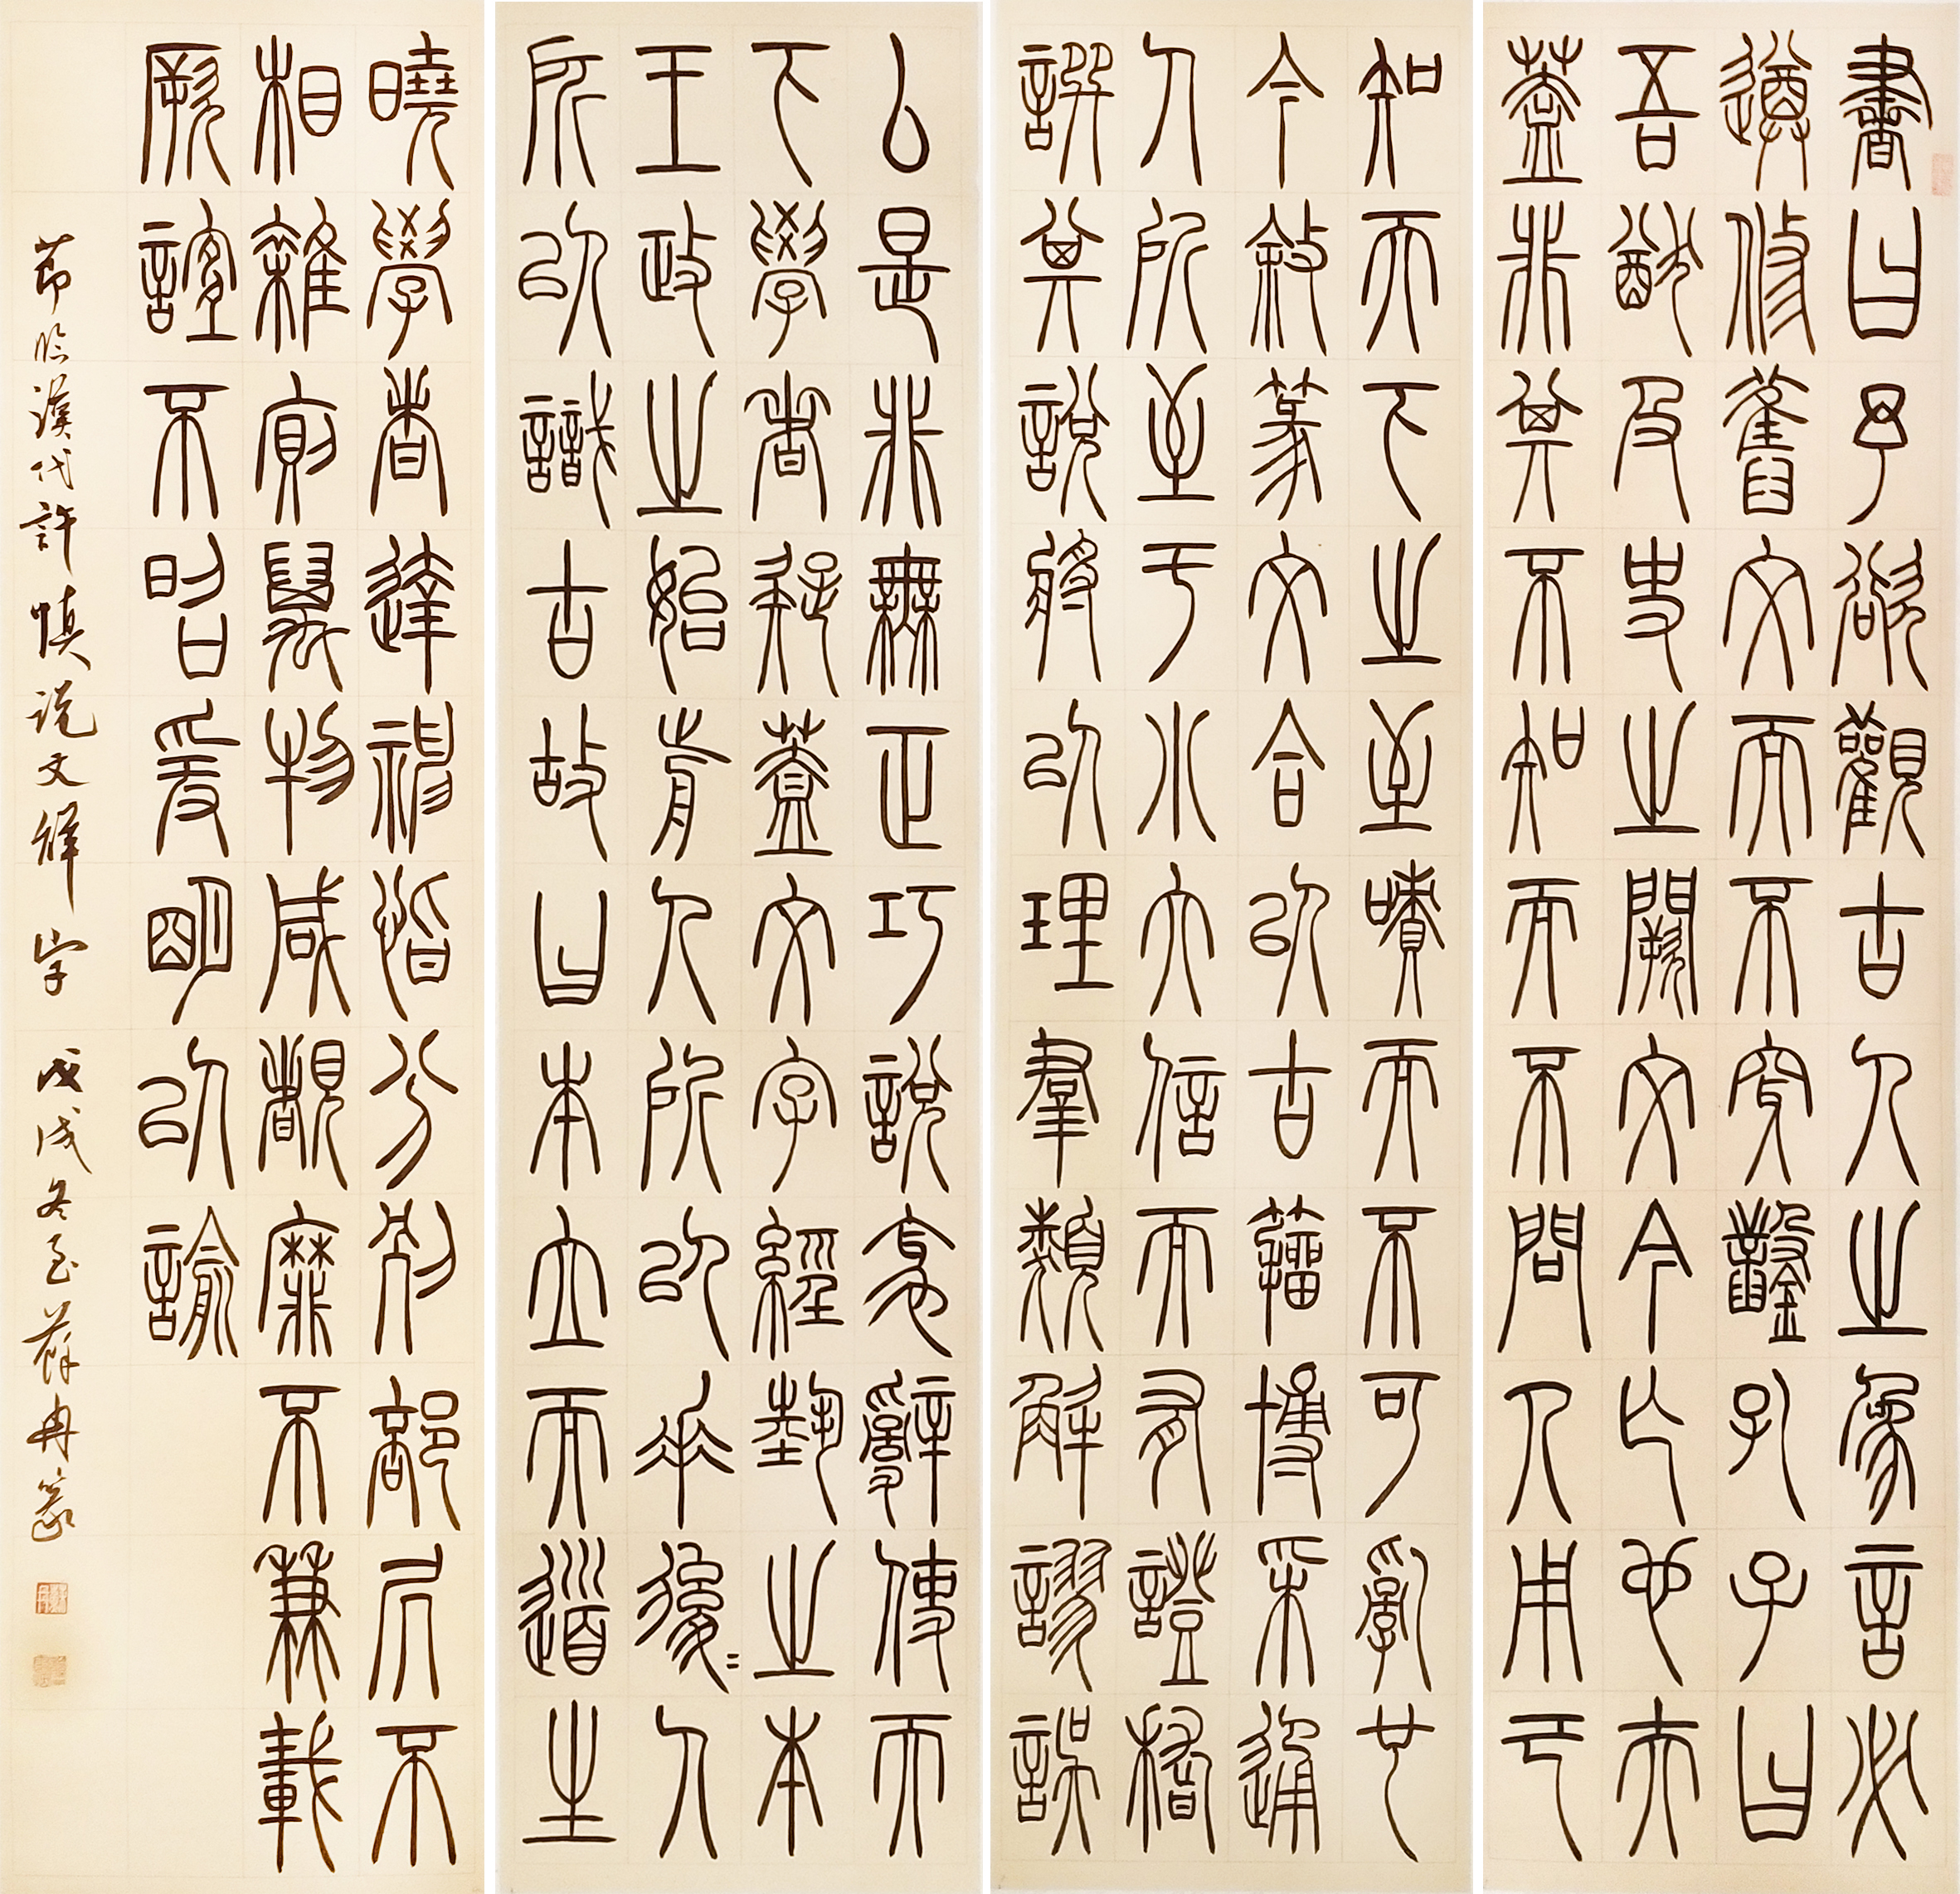 書曰予欲觀古人之象言必
遵修舊文而不穿鑿孔子曰
吾猶及史之闕文今亡也夫
蓋非其不知而不問人用己
知天下之至嘖而不可亂也
今敘篆文合以古籀博采通
人所至于小大信而有證稽
譔其說將以理羣類解謬誤
厶是非無正巧說衺辭使天
下學者疑蓋文字經埶之本
王政之始前人所以垂後〻人
所以識古故曰本立而道生
曉學者達神恉分別部居不
相雜廁萬物咸覩靡不兼載
厥誼不昭爰明以諭
節臨漢代許慎说文解字 戊戌冬至蘇冉篆